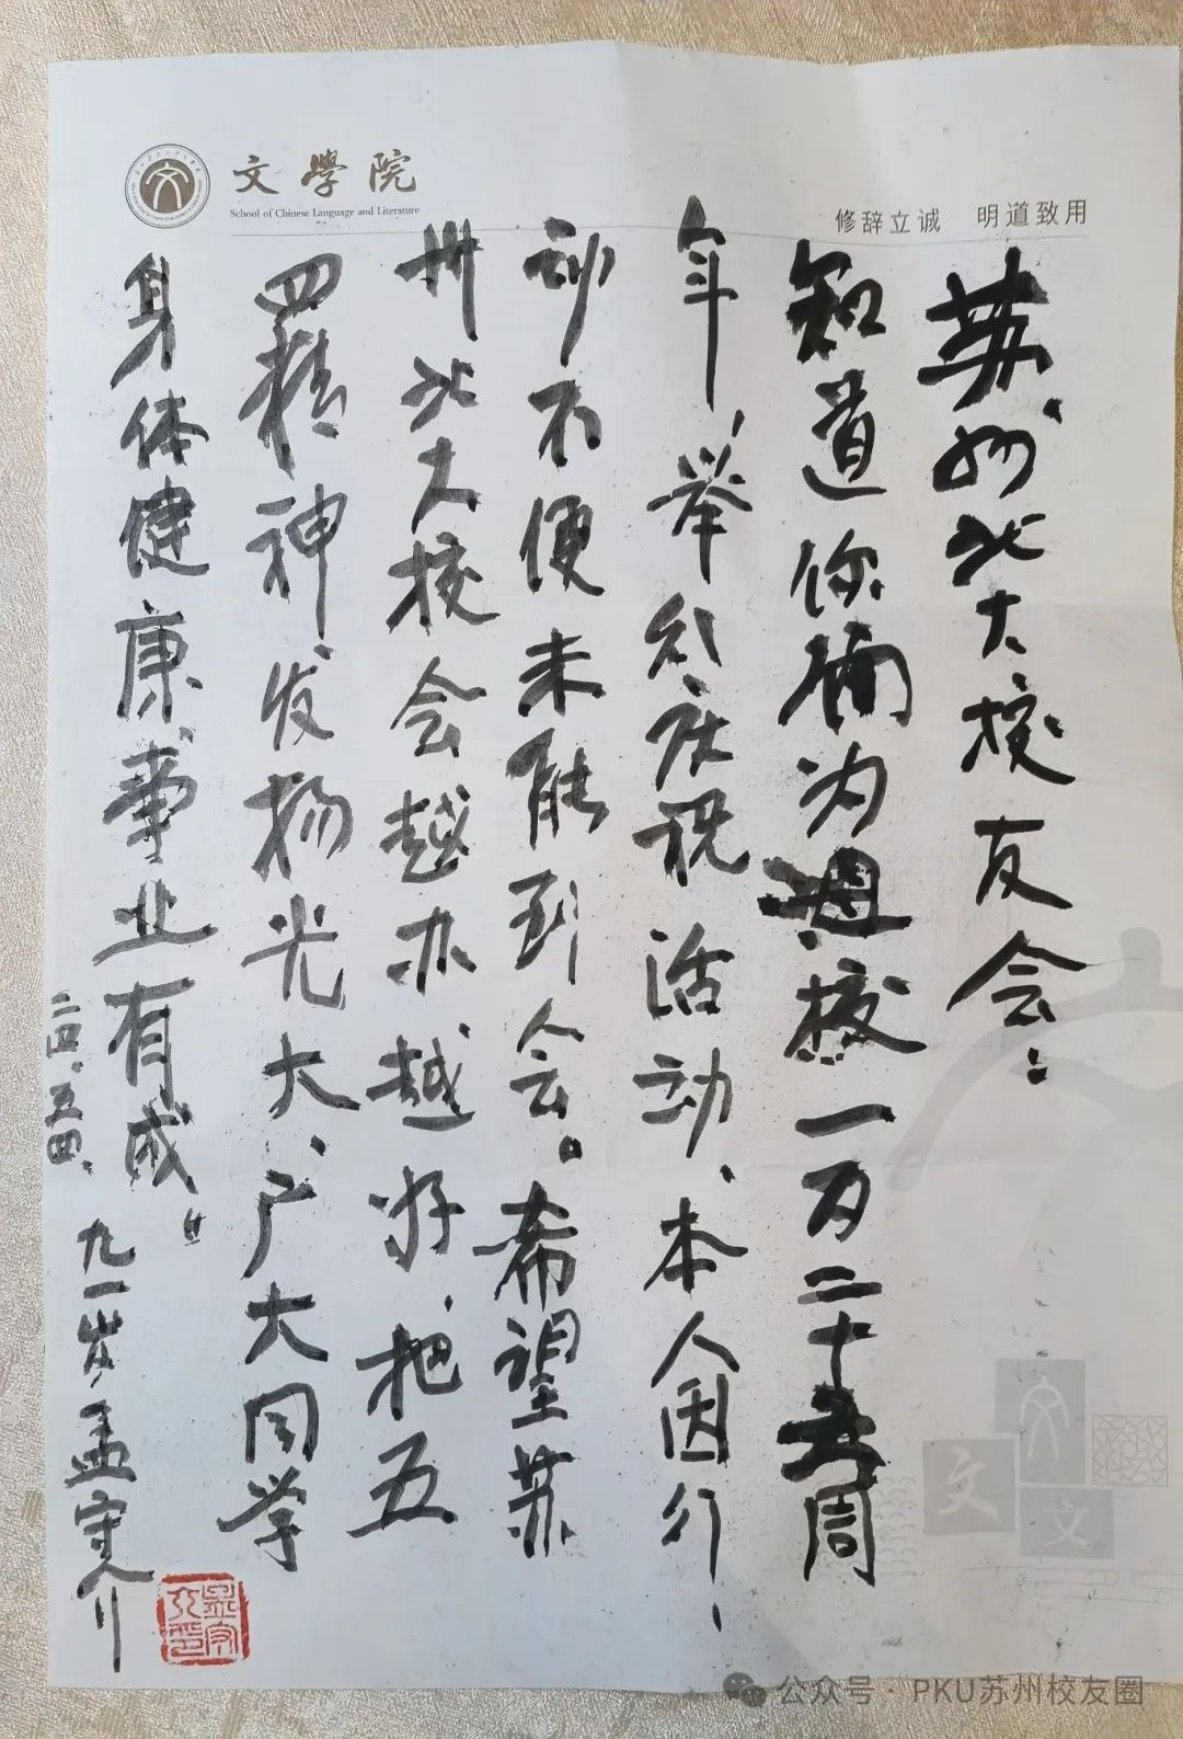 文學院
School of Chinese Language and Literature
修辞立诚 明道致用
苏州北大校友会：
知道你俩为母校一万二十五周
年，举行庆祝活动、本人因行，
动不便未能到会。希望苏
州北大校会越办越好，把五
四精神发扬光大、广大同学
身体健康事业有成。
二五.五四.
九一岁孟守介
公众号·PKU苏州校友圈